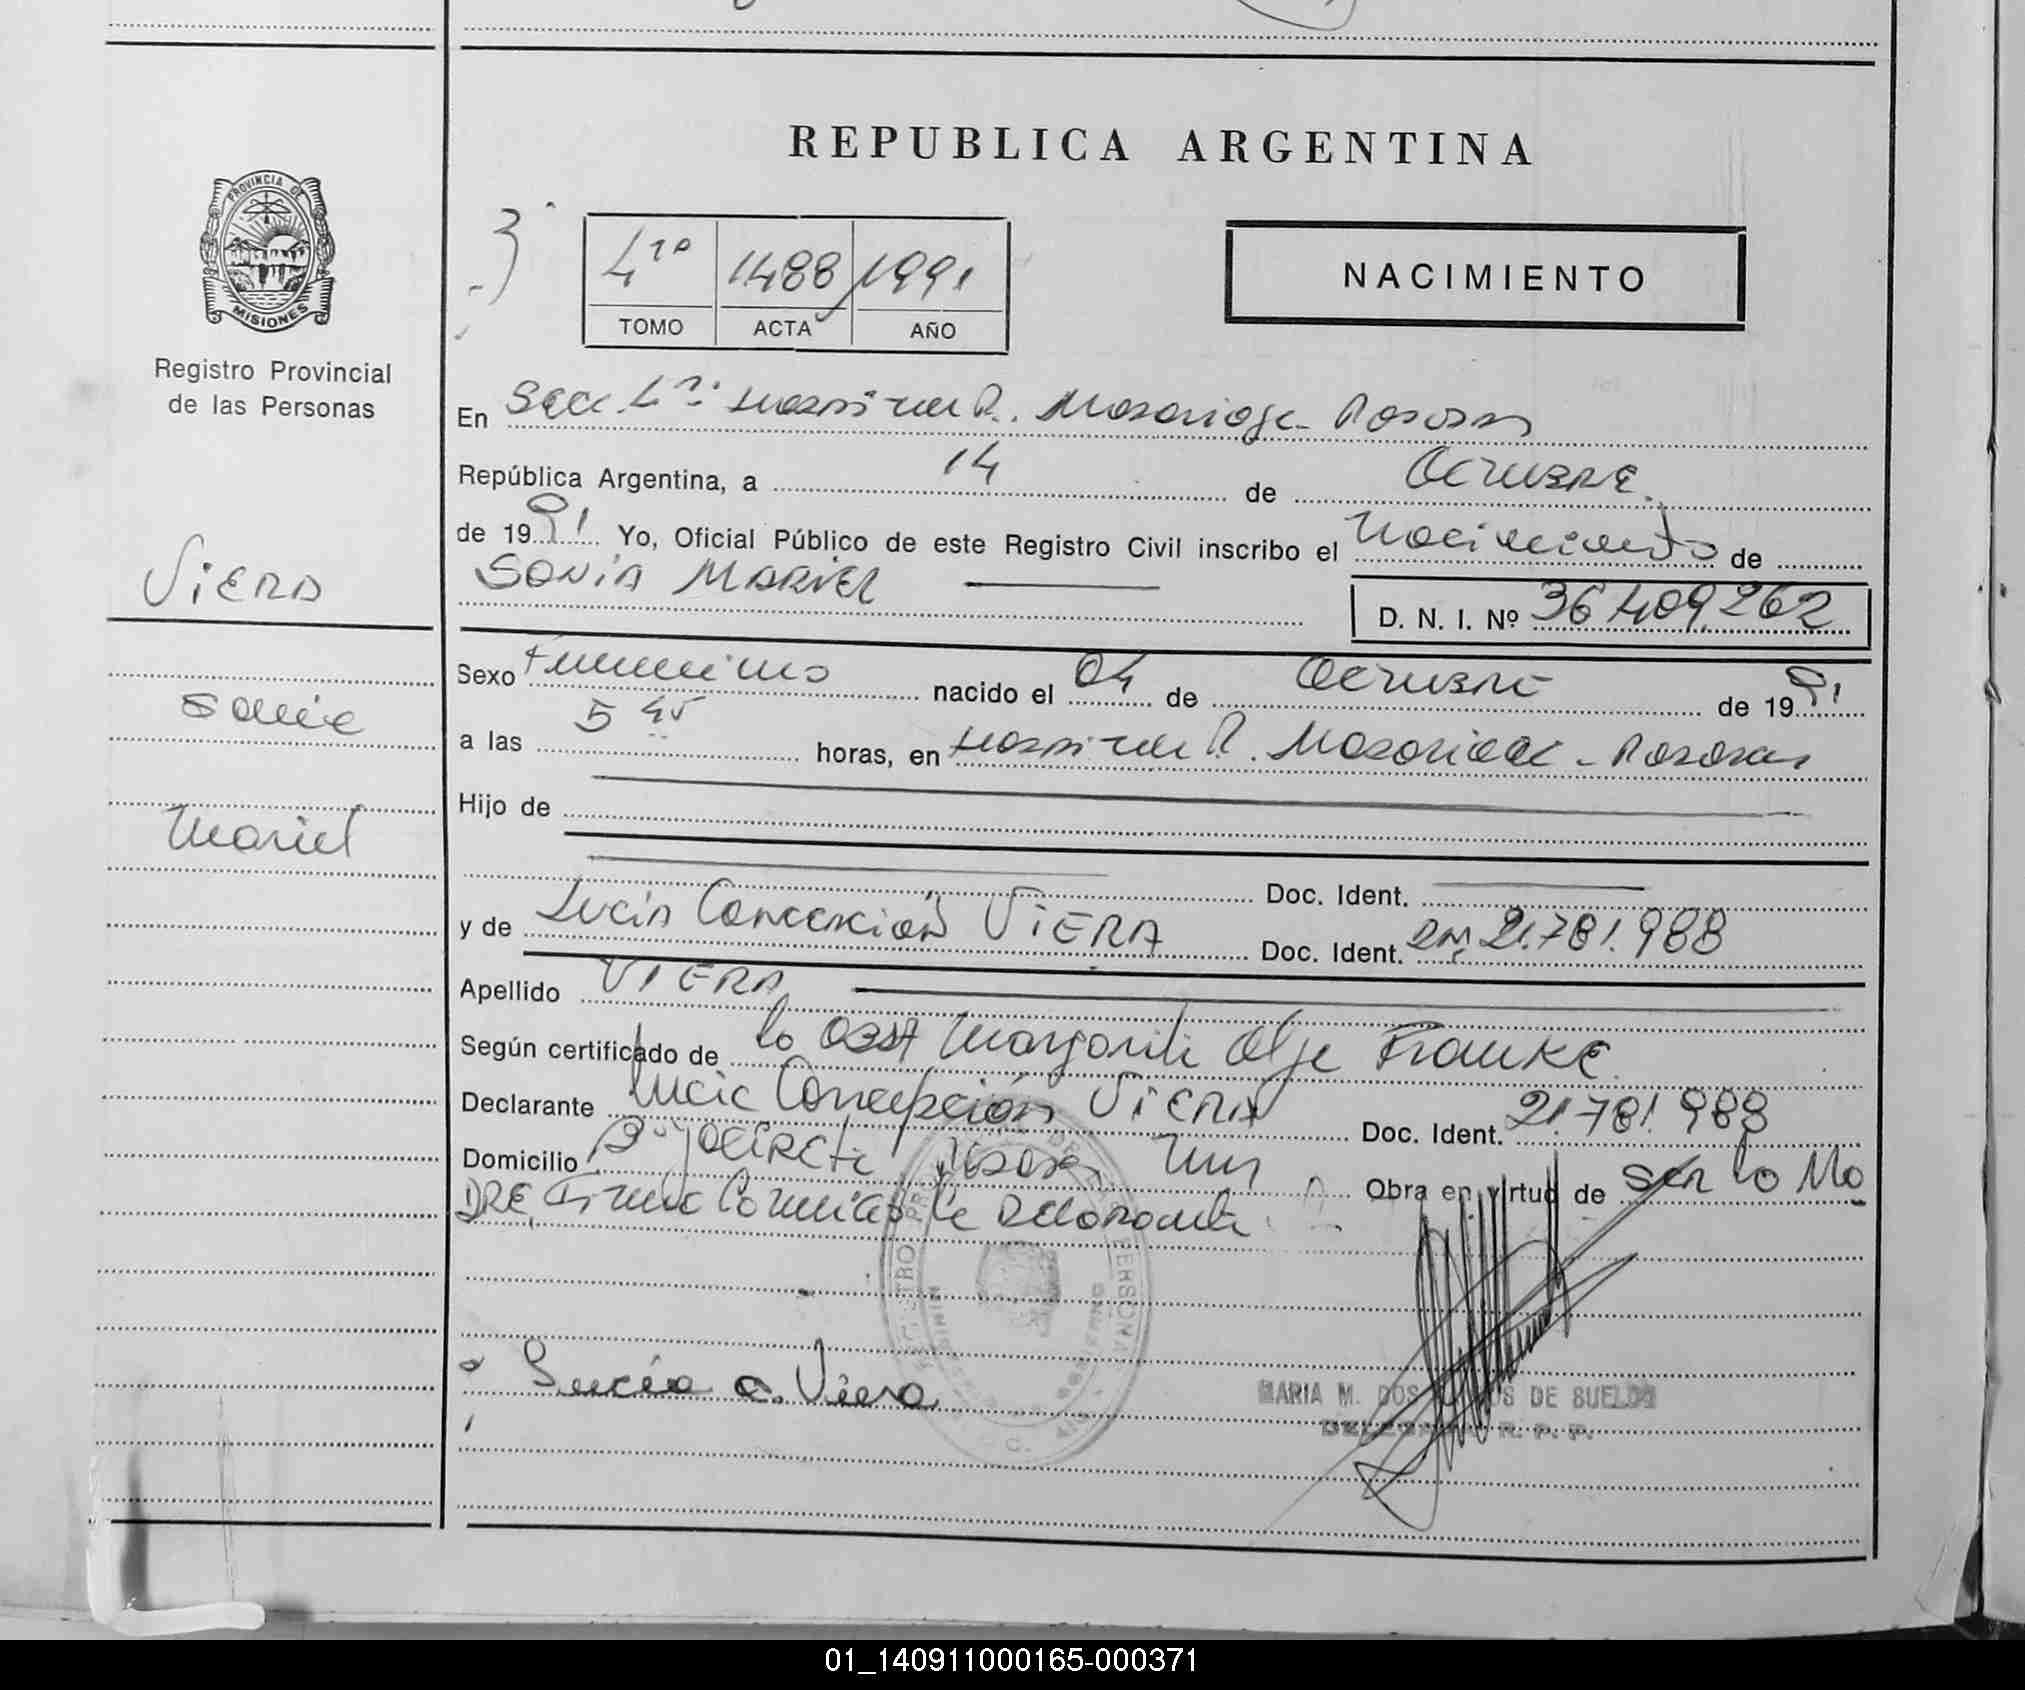 REPUBLICA ARGENTINA
PROVINCIA DE
MISIONES
Registro Provincial
de las Personas
1488 1991
TOMO ACTA AÑO
NACIMIENTO
En Secc. Hospital R. Madariaga - Posadas
República Argentina, a 14 de Octubre
de 1991 Yo, Oficial Público de este Registro Civil inscribo el Nacimiento de
SONIA MARIEL
D. N. I. Nº 36.409.262
VIERA
Sonia
Mariel
Sexo Femenino nacido el 04 de Octubre de 1991
a las 5 45 horas, en Hospital R. Madariaga - Posadas
Hijo de
Doc. Ident.
y de Lucia Concepción VIERA Doc. Ident. 21.781.988
Apellido VIERA
Según certificado de la Obst Margarita Olga Franke
Declarante Lucia Concepción VIERA Doc. Ident. 21.781.988
Domicilio Posadas Mns Obra en virtud de ser la Ma
DRE, Firma la Declarante
Lucía C. Viera
MARIA M. DOS DE BUELOS
R. P. P.
01_140911000165-000371